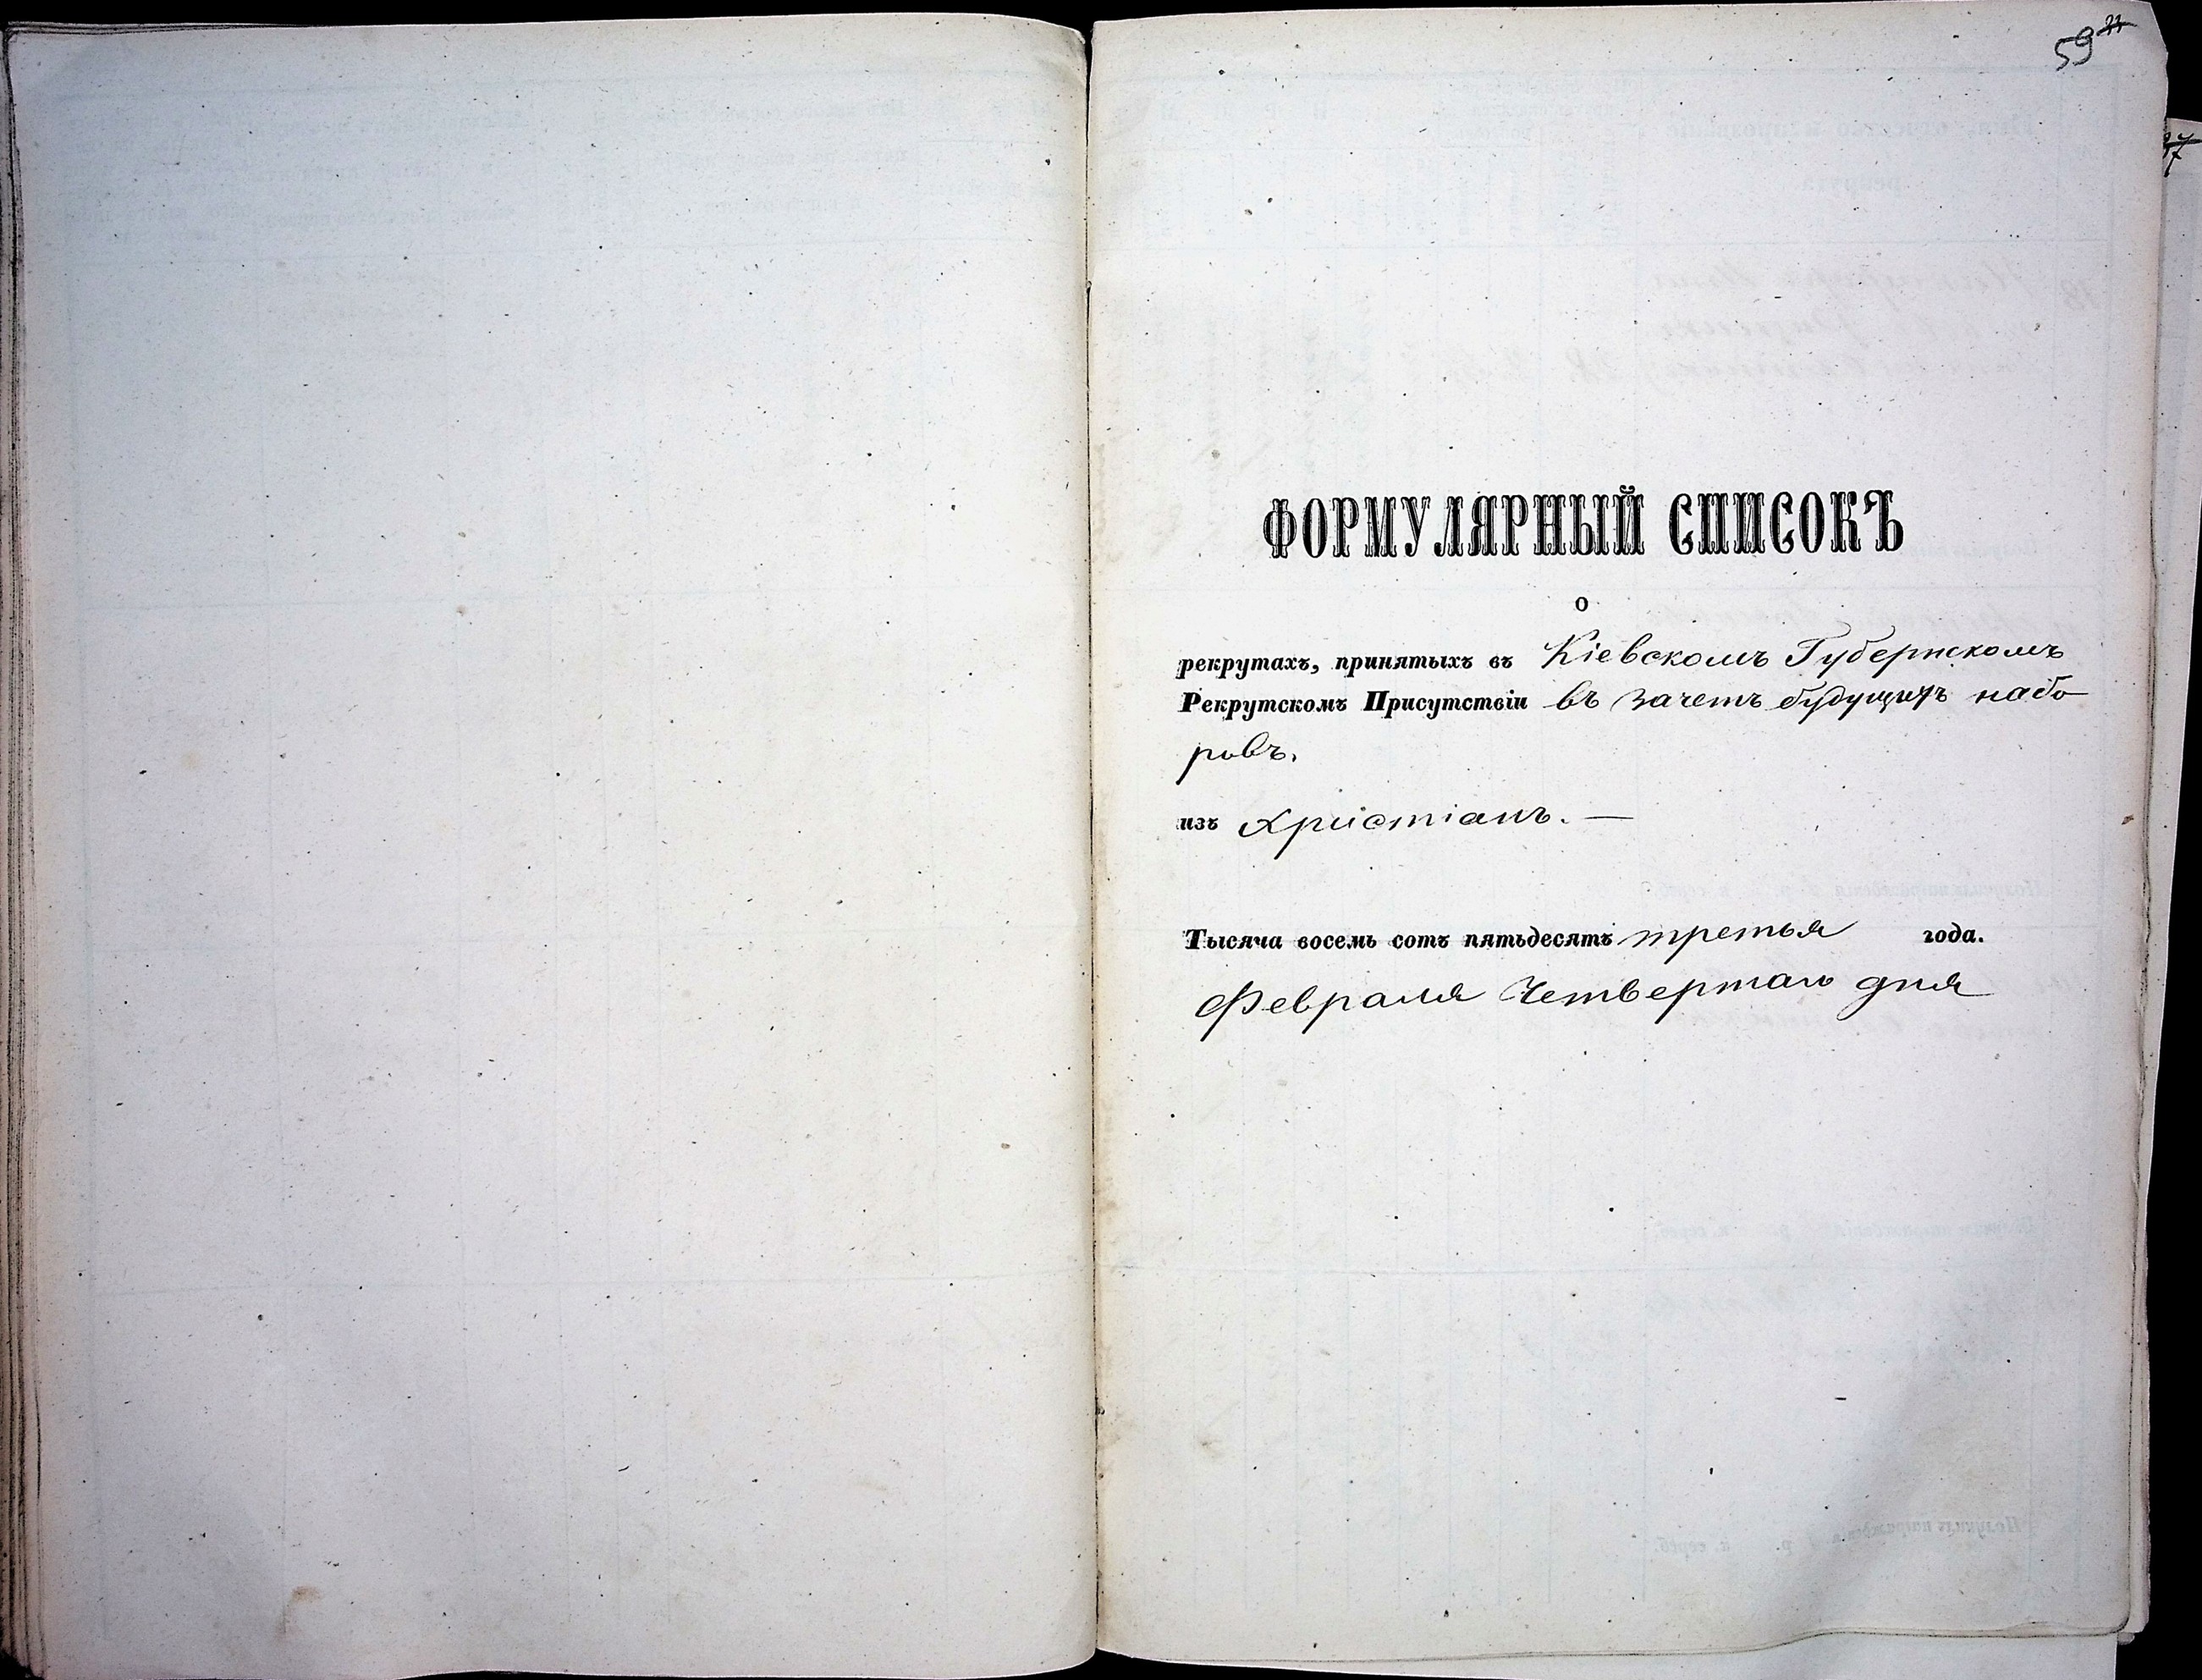 59
ФОРМУЛЯРНЫЙ СПИСОКЪ
о
рекрутахъ, принятыхъ въ Кіевскомъ Губернскомъ
Рекрутскомъ Присутствіи въ зачетъ будущихъ набо
ровъ.
изъ христіанъ. —
Тысяча восемь сотъ пятьдесятъ третья года.
Февраля Четвертаго дня